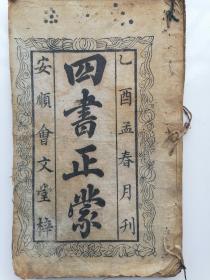 乙酉孟春月刊
四書正蒙
安順會文堂梓